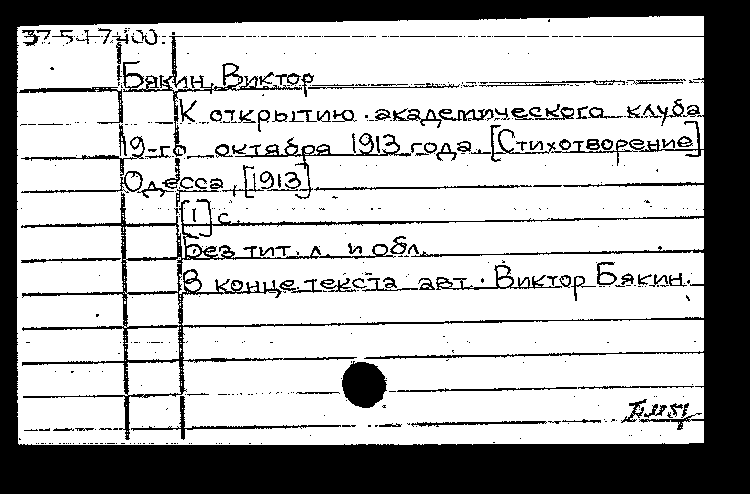 37.54.7.400.
Бякин, Виктор
К открытию академического клуба
19-го октября 1913 года. [Стихотворение]
Одесса, [1913]
[1] с.
Без тит. л. и обл.
В конце текста авт. Виктор Бякин.